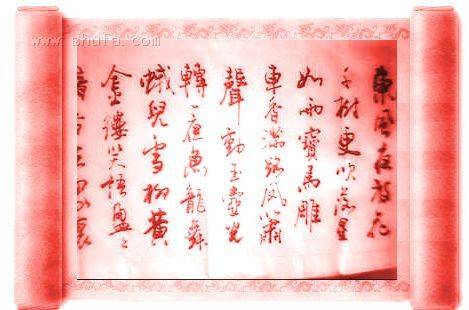 東風夜放花
千樹更吹落星
如雨寶馬雕
車香滿路鳳簫
聲動玉壺光
轉一夜魚龍舞
蛾兒雪柳黃
金縷笑語盈〻
www.shufa.com